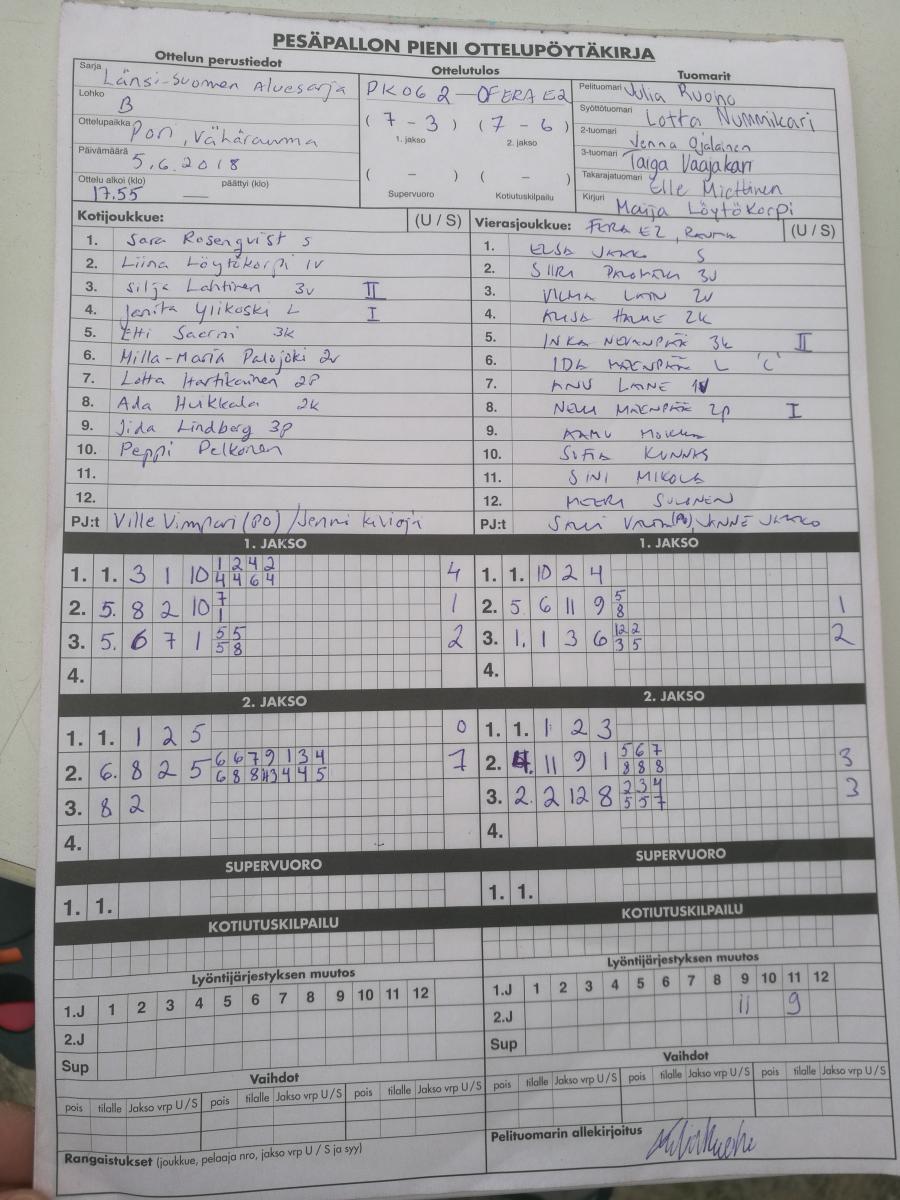 PESÄPALLON PIENI OTTELUPÖYTÄKIRJA
Ottelun perustiedot
Sarja Länsi-Suomen Aluesarja
Lohko B
Ottelupaikka Pori, Vähärauma
Päivämäärä 5.6.2018
Ottelu alkoi (klo) päättyi (klo)
17.55 —
Ottelutulos
PK06 2 - OFERA E2
(7 - 3) (7 - 6)
1. jakso 2. jakso
( - ) ( - )
Supervuoro Kotiutuskilpailu
Tuomarit
Pelituomari Julia Ruoho
Syöttötuomari Lotta Nummikari
2-tuomari Jenna Ojalainen
3-tuomari Taiga Vaajakari
Takarajatuomari Elle Miettinen
Kirjuri Maija Löytökorpi
Kotijoukkue: (U / S)
1. Sara Rosenqvist S
2. Liina Löytökorpi 1V
3. Silja Lahtinen 3v II
4. Janita Ylikoski L I
5. Etti Saarni 3k
6. Milla-Maria Palojoki 2v
7. Lotta Hartikainen 2P
8. Ada Hukkala 2k
9. Iida Lindberg 3p
10. Peppi Pelkonen
11.
12.
PJ:t Ville Vimpari (PO) / Jenni Kivioja
Vierasjoukkue: FERA E2, RAUMA (U / S)
1. ELSA JAAKO S
2. SIIRI 3V
3. VILMA LAIN 2V
4. ALISA HAUME 2K
5. INKA NEVANPÄÄ 3K II
6. IDA MÄENPÄÄ L 'C'
7. ANU LAINE 1V
8. NELLI MÄENPÄÄ 2P I
9. AAMU
10. SOFIA KUNNAS
11. SINI MIKOLA
12. MEERI SULONEN
PJ:t JANNE JAAKO
1. JAKSO
1. 1. 3 1 10 1 2 4 2 4
4 4 6 4
2. 5. 8 2 10 7 1
1
3. 5. 6 7 1 5 5 2
5 8
4.
1. JAKSO
1. 1. 10 2 4
2. 5. 6 11 9 5 1
8
3. 1. 1 3 6 12 2 2
3 5
4.
2. JAKSO
1. 1. 1 2 5 0
2. 6. 8 2 5 6 6 7 9 1 3 4 7
6 8 8 4 4 5
3. 8 2
4.
2. JAKSO
1. 1. 1 2 3
2. 4. 11 9 1 5 6 7 3
8 8 8
3. 2. 2 12 8 2 3 4 3
5 5 7
4.
SUPERVUORO
1. 1.
SUPERVUORO
1. 1.
KOTIUTUSKILPAILU
KOTIUTUSKILPAILU
Lyöntijärjestyksen muutos
1.J 1 2 3 4 5 6 7 8 9 10 11 12
2.J
Sup
Lyöntijärjestyksen muutos
1.J 1 2 3 4 5 6 7 8 9 10 11 12
2.J 11 9
Sup
Vaihdot
pois tilalle Jakso vrp U / S pois tilalle Jakso vrp U / S pois tilalle Jakso vrp U / S
Vaihdot
pois tilalle Jakso vrp U / S pois tilalle Jakso vrp U / S pois tilalle Jakso vrp U / S
Rangaistukset (joukkue, pelaaja nro, jakso vrp U / S ja syy)
Pelituomarin allekirjoitus